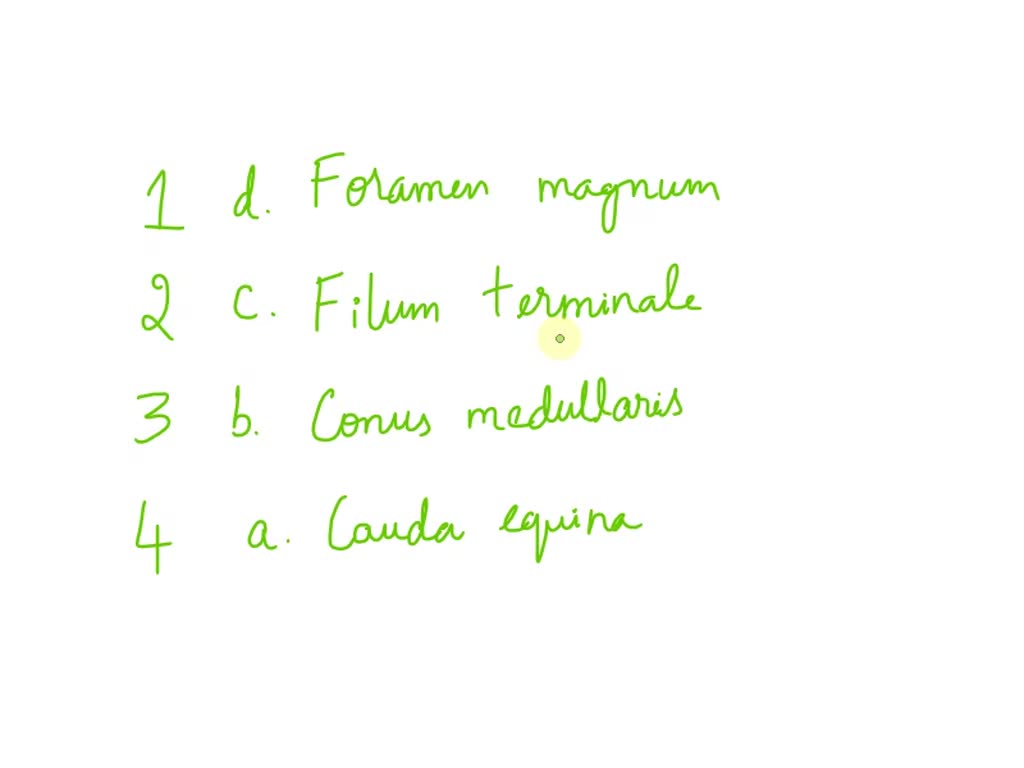 1 d. Foramen magnum
2 c. Filum terminale
3 b. Conus medullaris
4 a. Cauda equina